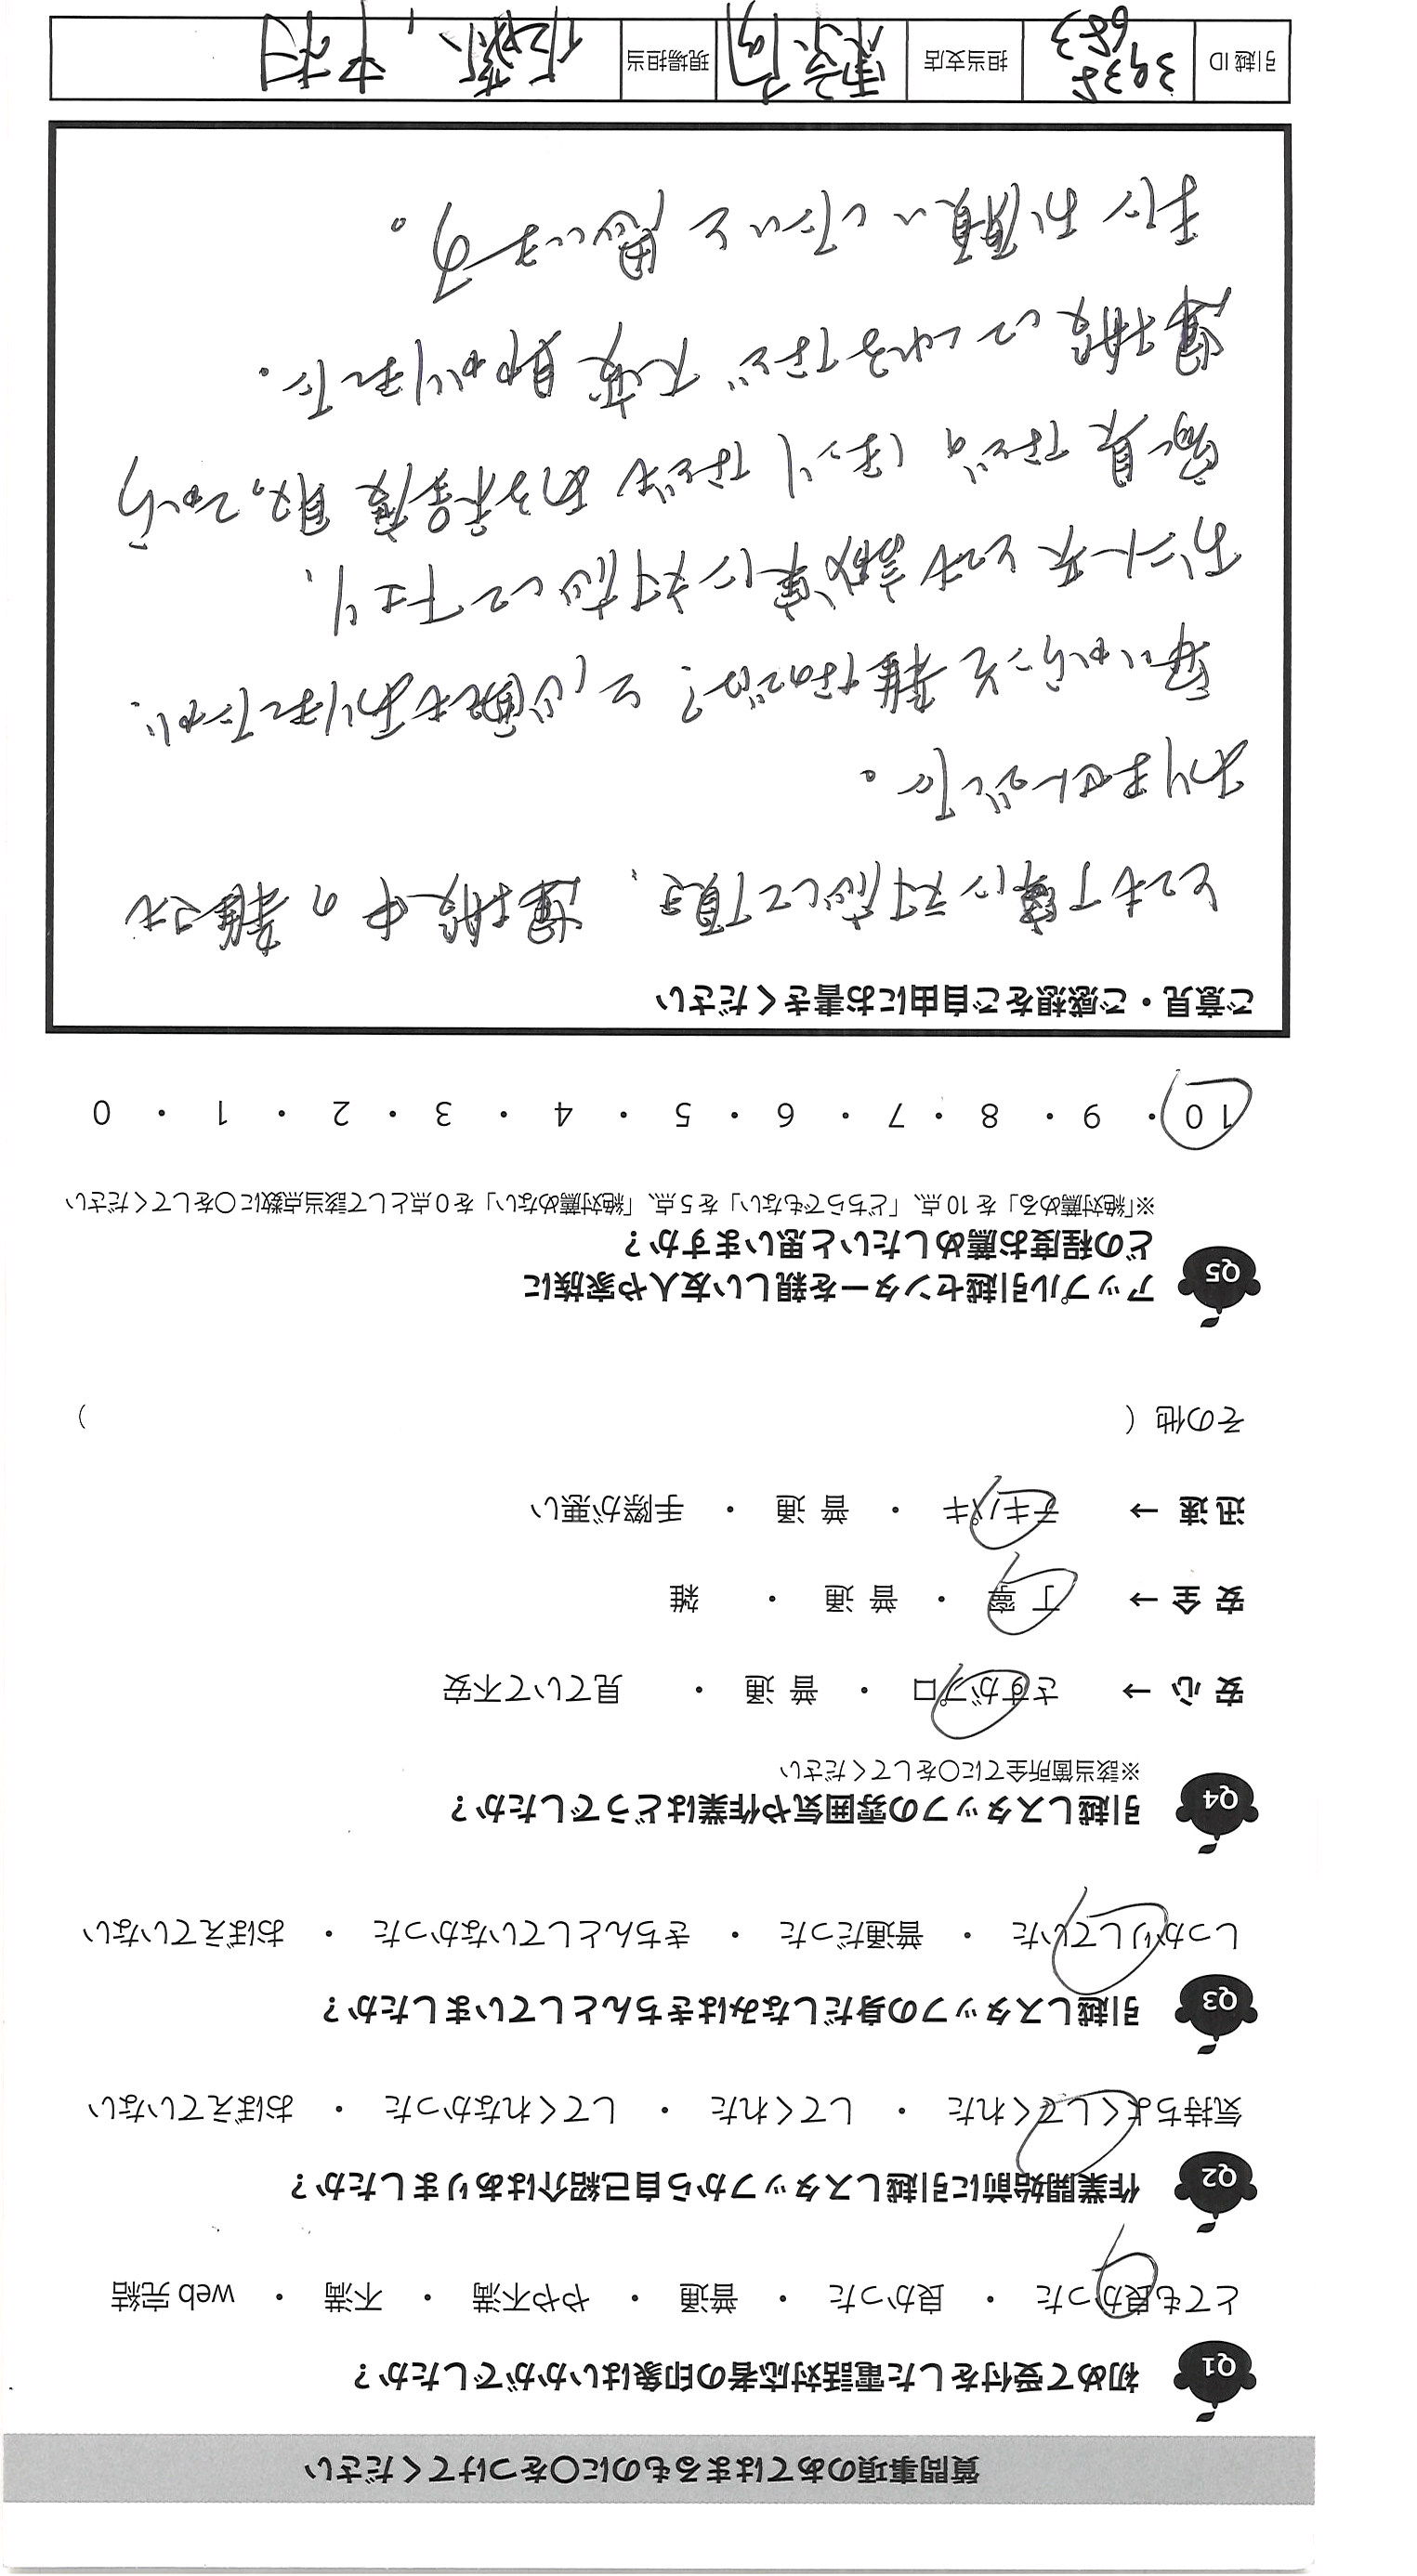 質問事項のあてはまるものに○をつけてください
Q1 初めて受付をした電話対応者の印象はいかがでしたか？
とても良かった ・ 良かった ・ 普通 ・ やや不満 ・ 不満 ・ web 完結
Q2 作業開始前に引越しスタッフから自己紹介はありましたか？
気持ちよくしてくれた ・ してくれた ・ してくれなかった ・ おぼえていない
Q3 引越しスタッフの身だしなみはきちんとしていましたか？
しっかりしていた ・ 普通だった ・ きちんとしていなかった ・ おぼえていない
Q4 引越しスタッフの雰囲気や作業はどうでしたか？
※該当箇所全てに○をしてください
安 心 → さすがプロ ・ 普 通 ・ 見ていて不安
安 全 → 丁 寧 ・ 普 通 ・ 雑
迅 速 → テキパキ ・ 普 通 ・ 手際が悪い
その他（ ）
Q5 アップル引越センターを親しい友人や家族に
どの程度お薦めしたいと思いますか？
※「絶対薦める」を 10 点、「どちらでもない」を 5 点、「絶対薦めない」を 0 点として該当点数に○をしてください
10 ・ 9 ・ 8 ・ 7 ・ 6 ・ 5 ・ 4 ・ 3 ・ 2 ・ 1 ・ 0
ご意見・ご感想をご自由にお書きください
とても丁寧に対応して頂き、運搬中の雑さも
ありませんでした。
安いからこそ雑なのでは？と心配もありましたが、
お二人ともとても 対応して下さり、
家具などの ほこりなどもある程度 取ってから
運搬してくれるなど 大変助かりました。
またお願いしたいと思います。
引越 ID 3935 653 担当支店 東京南 現場担当 佐藤、中村